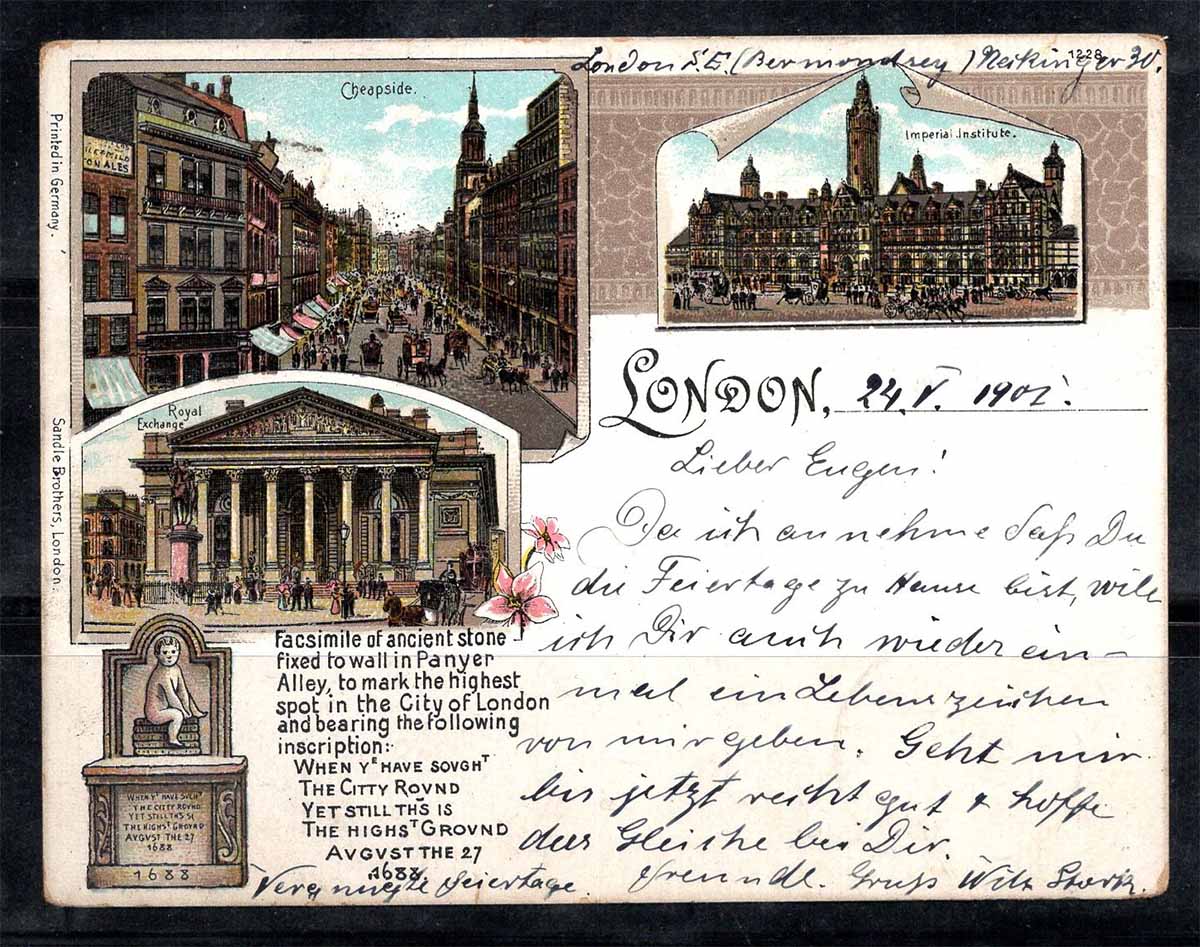 London S.E. (Bermondsey) Neckinger 30.
1228
Cheapside.
ON ALES
Imperial Institute.
Printed in Germany.
Sandle Brothers, London.
Royal
Exchange
LONDON, 24. V. 1901.
Lieber Eugen!
Da ich annehme daß Du
die Feiertage zu Hause bist, will
ich Dir auch wieder ein-
mal ein Lebenszeichen
von mir geben. Geht mir
bis jetzt recht gut & hoffe
das Gleiche bei Dir.
Freundl. Gruß Wilh
Vergnügte Feiertage.
Facsimile of ancient stone
fixed to wall in Panyer
Alley, to mark the highest
spot in the City of London
and bearing the following
inscription:-
WHEN Yᴱ HAVE SOVGHᵀ
THE CITTY ROVND
YET STILL THS IS
THE HIGHSᵀ GROVND
AVGVST THE 27
1688.
WHEN Yᴱ HAVE
THE CITTY ROVND
YET STILL THS
THE HIGHSᵀ GROVND
AVGVST THE 27
1688
1688